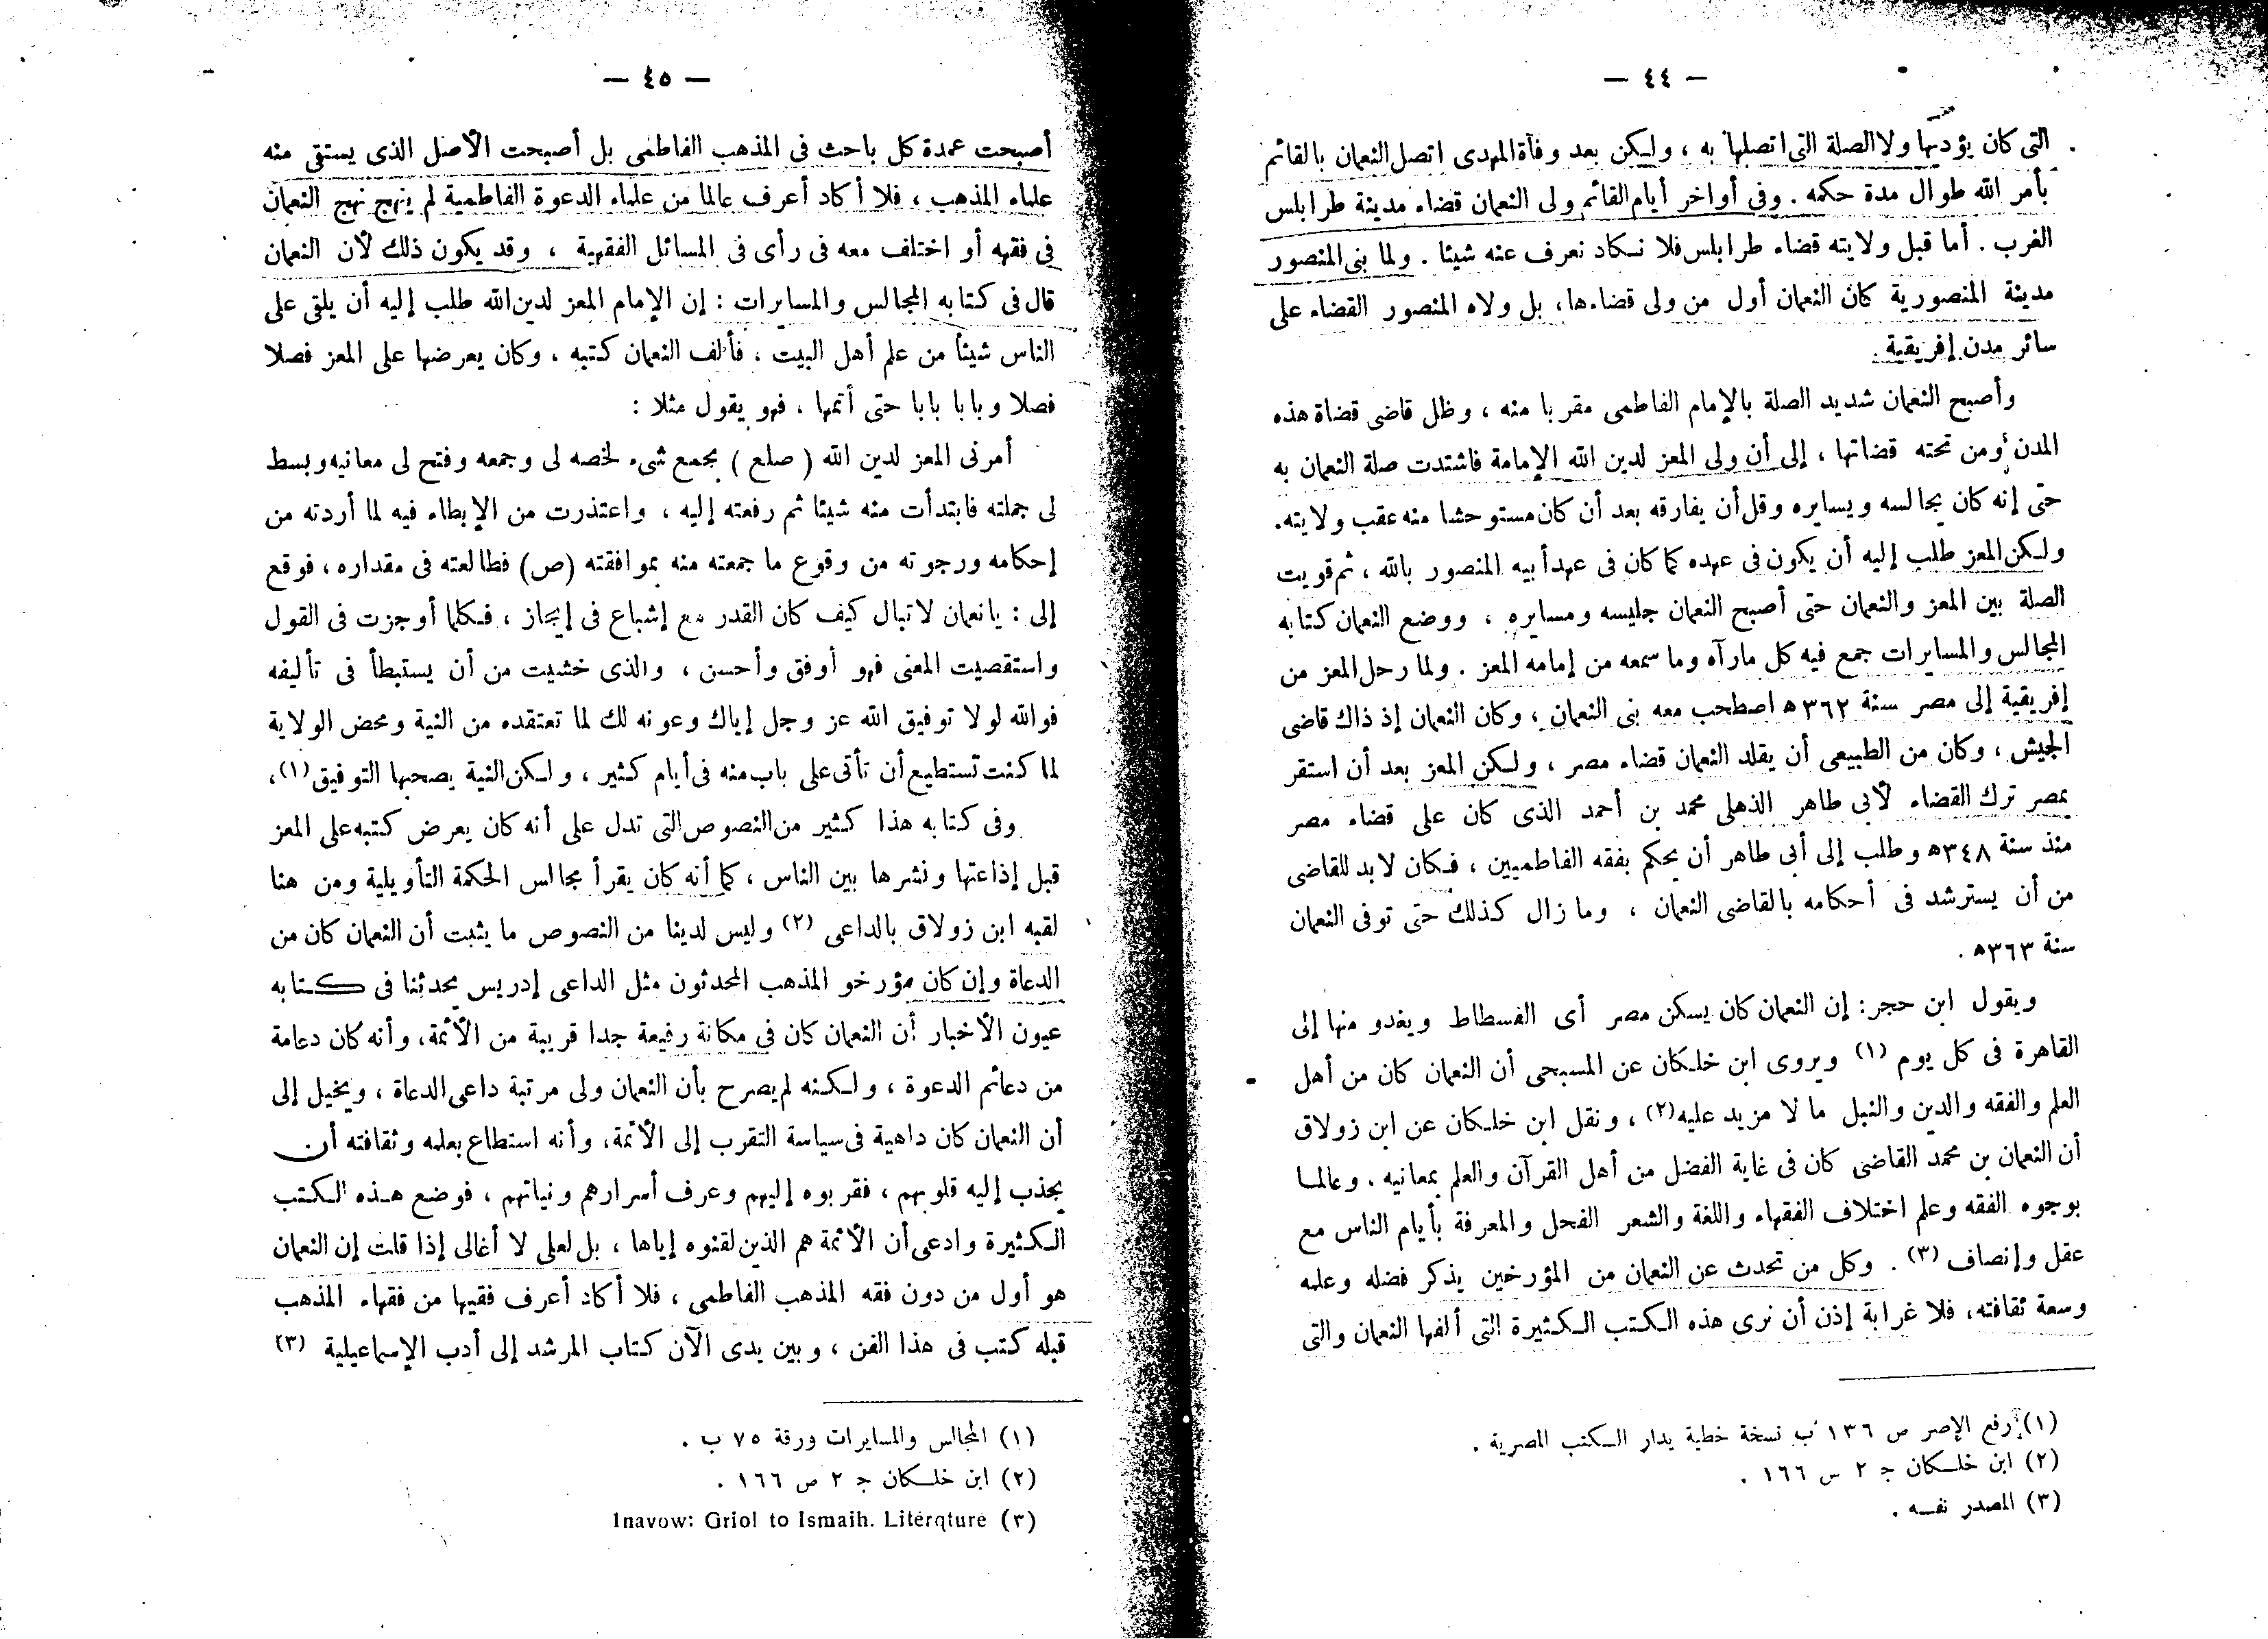 — ٤٤ —
التى كان يؤديها ولا الصلة التى اتصلها به ، ولكن بعد وفاة المهدى اتصل النعمان بالقائم
بأمر الله طوال مدة حكمه . وفى أواخر أيام القائم ولى النعمان قضاء مدينة طرابلس
الغرب . أما قبل ولايته قضاء طرابلس فلا نكاد نعرف عنه شيئا . ولما بنى المنصور
مدينة المنصورية كان النعمان أول من ولى قضاءها، بل ولاه المنصور القضاء على
سائر مدن إفريقية .
وأصبح النعمان شديد الصلة بالإمام الفاطمى مقربا منه ، وظل قاضى قضاة هذه
المدن ومن تحته قضاتها ، إلى أن ولى المعز لدين الله الإمامة فاشتدت صلة النعمان به
حتى إنه كان يجالسه ويسايره وقل أن يفارقه بعد أن كان مستوحشا منه عقب ولايته.
ولكن المعز طلب إليه أن يكون فى عهده كما كان فى عهد أبيه المنصور بالله ، ثم قويت
الصلة بين المعز والنعمان حتى أصبح النعمان جليسه ومسايره ، ووضع النعمان كتابه
المجالس والمسايرات جمع فيه كل مارآه وما سمعه من إمامه المعز . ولما رحل المعز من
إفريقية إلى مصر سنة ٣٦٢ه اصطحب معه بنى النعمان ، وكان النعمان إذ ذاك قاضى
الجيش ، وكان من الطبيعى أن يقلد النعمان قضاء مصر ، ولكن المعز بعد أن استقر
بمصر ترك القضاء لأبى طاهر الذهلى محمد بن أحمد الذى كان على قضاء مصر
منذ سنة ٣٤٨ه وطلب إلى أبى طاهر أن يحكم بفقه الفاطميين ، فكان لابد للقاضى
من أن يسترشد فى أحكامه بالقاضى النعمان ، وما زال كذلك حتى توفى النعمان
سنة ٣٦٣ه .
ويقول ابن حجر: إن النعمان كان يسكن مصر أى الفسطاط ويغدو منها إلى
القاهرة فى كل يوم (١) ويروى ابن خلكان عن المسبحى أن النعمان كان من أهل
العلم والفقه والدين والنبل ما لا مزيد عليه(٢) ، ونقل ابن خلكان عن ابن زولاق
أن النعمان بن محمد القاضى كان فى غاية الفضل من أهل القرآن والعلم بمعانيه . وعالما
بوجوه الفقه وعلم اختلاف الفقهاء واللغة والشعر الفحل والمعرفة بأيام الناس مع
عقل وإنصاف (٣) . وكل من تحدث عن النعمان من المؤرخين يذكر فضله وعلمه
وسعة ثقافته، فلا غرابة إذن أن نرى هذه الكتب الكثيرة التى ألفها النعمان والتى
(١) رفع الإصر ص ١٣٦ ب نسخة خطية بدار الكتب المصرية .
(٢) ابن خلكان ج ٢ س ١٦٦ .
(٣) المصدر نفسه .
— ٤٥ —
أصبحت عمدة كل باحث فى المذهب الفاطمى بل أصبحت الأصل الذى يستقى منه
علماء المذهب ، فلا أكاد أعرف عالما من علماء الدعوة الفاطمية لم ينهج نهج النعمان
فى فقهه أو اختلف معه فى رأى فى المسائل الفقهية ، وقد يكون ذلك لأن النعمان
قال فى كتابه المجالس والمسايرات : إن الإمام المعز لدين الله طلب إليه أن يلقى على
الناس شيئا من علم أهل البيت ، فألف النعمان كتبه ، وكان يعرضها على المعز فصلا
فصلا وبابا بابا حتى أتمها ، فهو يقول مثلا :
أمرنى المعز لدين الله ( صلع ) بجمع شىء لخصه لى وجمعه وفتح لى معانيه وبسط
لى جملته فابتدأت منه شيئا ثم رفعته إليه ، واعتذرت من الإبطاء فيه لما أردته من
إحكامه ورجوته من وقوع ما جمعته منه بموافقته (ص) فطالعته فى مقداره ، فوقع
إلى : يانعمان لاتبال كيف كان القدر مع إشباع فى إيجاز ، فكلما أوجزت فى القول
واستقصيت المعنى فهو أوفق وأحسن ، والذى خشيت من أن يستبطأ فى تأليفه
فوالله لولا توفيق الله عز وجل إياك وعونه لك لما تعتقده من النية ومحض الولاية
لما كنت تستطيع أن تأتى على باب منه فى أيام كثير ، ولكن النية يصحبها التوفيق(١)،
وفى كتابه هذا كثير من النصوص التى تدل على أنه كان يعرض كتبه على المعز
قبل إذاعتها ونشرها بين الناس ، كما أنه كان يقرأ مجالس الحكمة التأويلية ومن هنا
لقبه ابن زولاق بالداعى (٢) وليس لدينا من النصوص ما يثبت أن النعمان كان من
الدعاة وإن كان مؤرخو المذهب المحدثون مثل الداعى إدريس يحدثنا فى كتابه
عيون الأخبار أن النعمان كان فى مكانة رفيعة جدا قريبة من الأئمة، وأنه كان دعامة
من دعائم الدعوة ، ولكنه لم يصرح بأن النعمان ولى مرتبة داعى الدعاة ، ويخيل إلى
أن النعمان كان داهية فى سياسة التقرب إلى الأئمة، وأنه استطاع بعلمه وثقافته أن
يجذب إليه قلوبهم ، فقربوه إليهم وعرف أسرارهم ونياتهم ، فوضع هذه الكتب
الكثيرة وادعى أن الأئمة هم الذين لقنوه إياها ، بل لعلى لا أغالى إذا قلت إن النعمان
هو أول من دون فقه المذهب الفاطمى ، فلا أكاد أعرف فقيها من فقهاء المذهب
قبله كتب فى هذا الفن ، وبين يدى الآن كتاب المرشد إلى أدب الإسماعيلية (٣)
(١) المجالس والمسايرات ورقة ٧٥ ب .
(٢) ابن خلكان ج ٢ ص ١٦٦ .
(٣) Inavow: Griol to Ismaih. Literqture